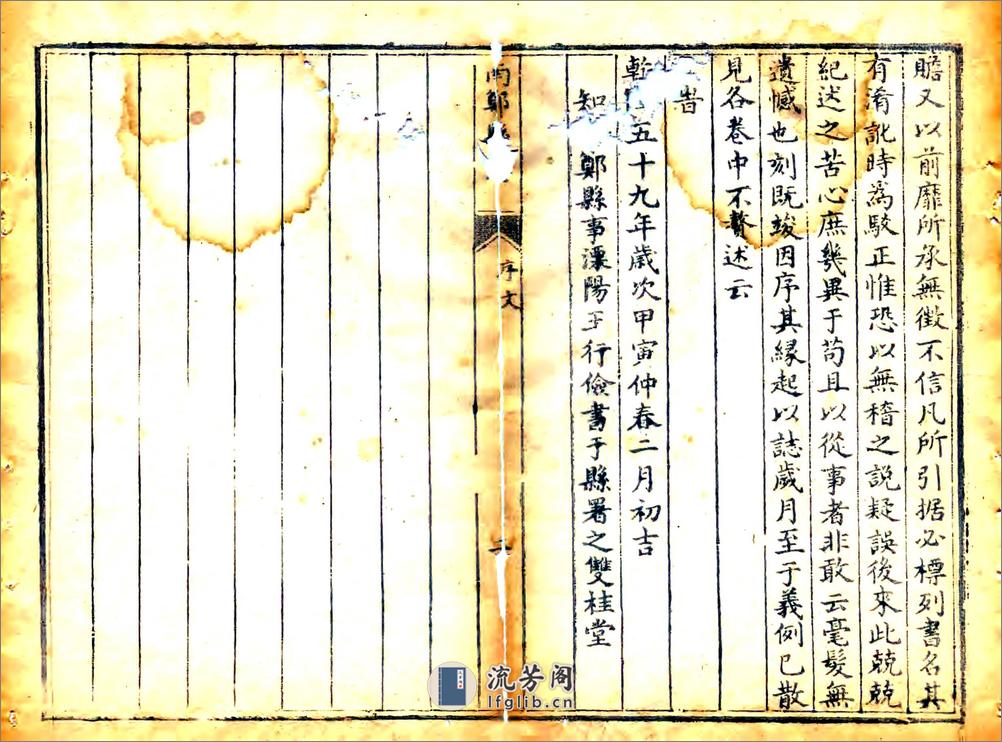 贍又以前靡所承無徵不信凡所引据必標列書名其
有淆訛時為駁正惟恐以無稽之說疑誤後來此兢兢
紀述之苦心庶幾異于苟且以從事者非敢云毫髮無
遺憾也刻既竣因序其緣起以誌歲月至于義例已散
見各卷中不贅述云
旹
乾五十九年歲次甲寅仲春二月初吉
知鄭縣事溧陽王行儉書于縣署之雙桂堂
南鄭
序文
二
流芳阁
lfglib.cn